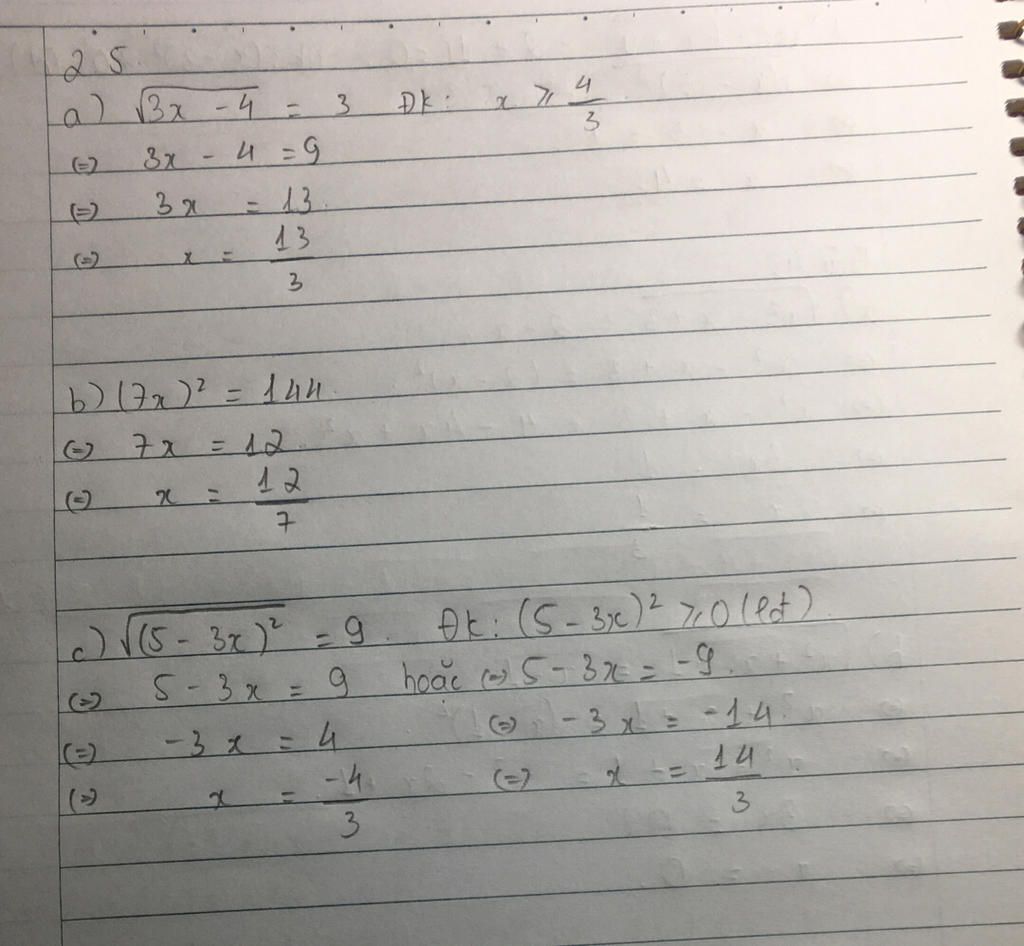 25.
a) √(3x - 4) = 3 ĐK: x ≥ 4/3
(=) 3x - 4 = 9
(=) 3x = 13.
(=) x = 13/3
b) (7x)² = 144.
(=) 7x = 12.
(=) x = 12/7
c) √((5 - 3x)²) = 9. ĐK: (5 - 3x)² ≥ 0 (lđ)
(=) 5 - 3x = 9 hoặc (=) 5 - 3x = -9.
(=) -3x = 4 (=) -3x = -14.
(=) x = -4/3 (=) x = 14/3.